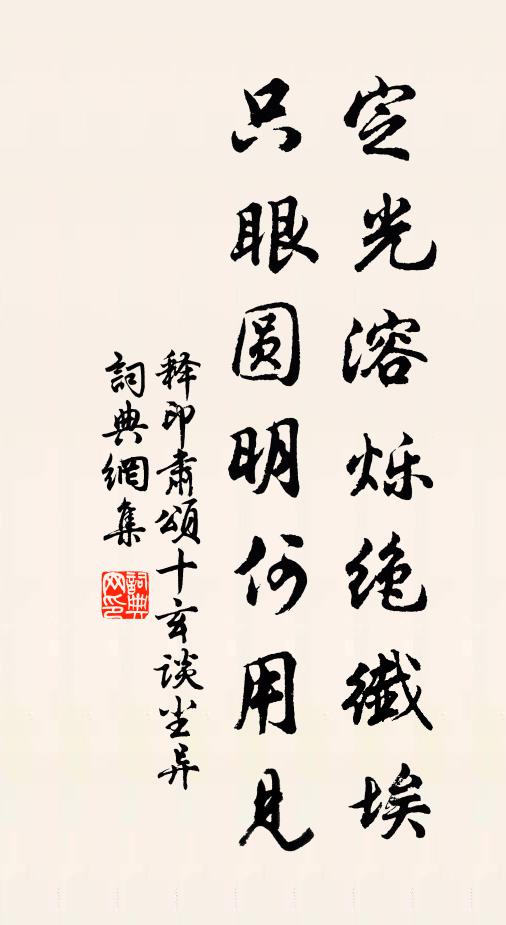 定光溶烁绝纤埃
只眼圆明何用见
释印肃颂十玄谈尘异
詞典網集
詞典网印